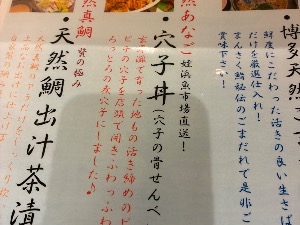 博多天然ご
鮮度にこだわった活きの良い生さば
だけを厳選仕入れ！
まんさく鮨秘伝のごまだれで是非ご
賞味下さい！
然あなご 姪浜魚市場直送！
・穴子丼（穴子の骨せんべ
ピチの穴子を店頭で開きふわっふわ
らっとろの煮穴子にしました♪
然真鯛 贅の極み
・天然鯛出汁茶漬